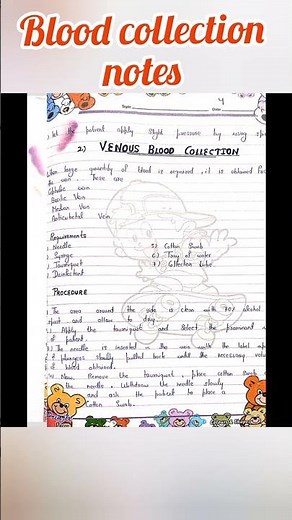 Blood collection
notes
Topic
4
Date
let the patient apply slight pressure by using
2) VENOUS BLOOD COLLECTION
When large quantity of blood is required, it is obtained
the vein. These are
vein
Basilic Vein
Median Vein
Antecubital Vein
Requirements
Needle
Syringe
Tourniquet
Disinfectant
5) Cotton Swab
6) of water
7) Collection tube
PROCEDURE
The area around the side is clean with 70% alcohol
spirit and allow to dry.
Apply the tourniquet and select the
of patient.
The needle is inserted in the vein with the
of plunger slowly pulled back until the necessary
of blood obtained.
Now, Remove the tourniquet, place cotton swab
the needle. Withdraw the needle slowly
and ask the patient to place a
Cotton Swab.